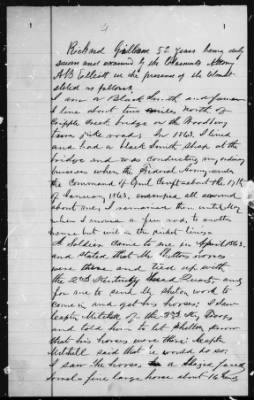 1
Richard Gilliam 52 years being duly
sworn and examined by the Claimants Atty
A B Elliott in the presence of the Claimt
stated as follows.
I am a Black Smith and farmer
I live about two miles North of
Cripple Creek bridge on the Woodbury
turn pike road. In 1863 I lived
and had a black Smith Shop at the
bridge and was conducting my ordinary
business when the Federal Army under
the Command of Genl Croft about the 17th
of January 1863, encamped all around
about me, I remained there until
when I moved a few rods to another
house but within the picket lines.
A Soldier came to me in April 1863.
and stated that Mr horses
were there and tied up with
the 2nd Kentucky and
for me to send Mr word to
come and get his horses; I saw
Capt Mitchell of the 2nd Ky Boys
and told him to let know
that his horses were there. Capt
Mitchell said that he would do so.
I saw the horses,
a fine large horse about 16